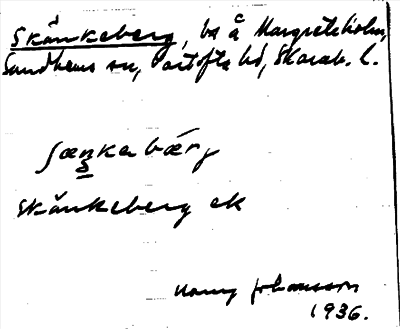 Skånkeberg, bs å Margreteholm,
Sandhems sn, Vartofta hd, Skarab. l.
ʃæŋkabærj
Skånkeberg ek
Johansson
1936.